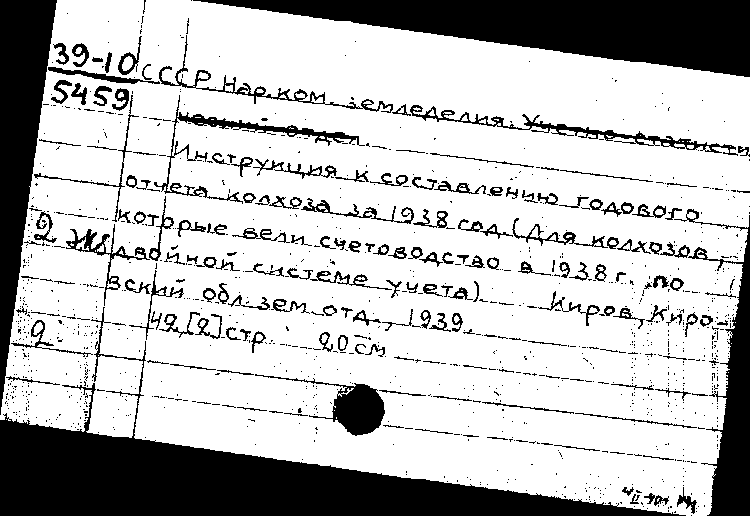 39-10
5459
СССР Нар. ком. земледелия. Учетно-статисти
ческий отдел.
Инструкция к составлению годового
отчета колхоза за 1938 год. (Для колхозов,
которые вели счетоводство в 1938 г. по
двойной системе учета) Киров, Киро-
вский обл. зем. отд., 1939.
42, [2] стр. 20 см
2 экз
2